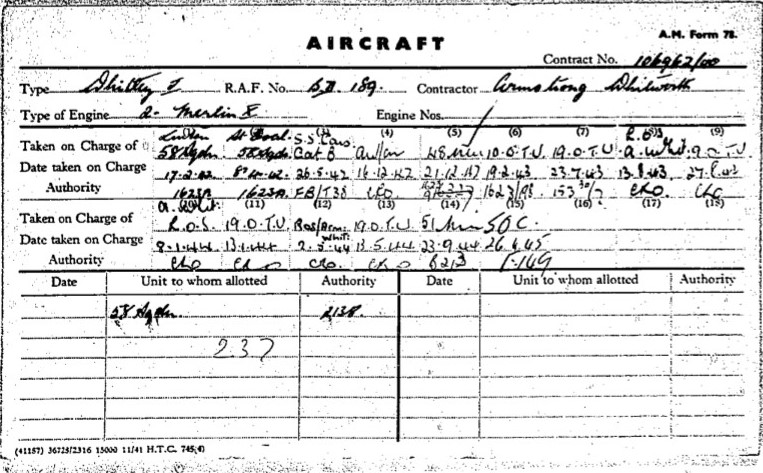 A.M. Form 78.
AIRCRAFT
Contract No. 106962/00
Type Whitley V R.A.F. No. 189. Contractor Armstrong Whitworth
Type of Engine 2- Merlin X Engine Nos.
(4) (5) (6) (7) (9)
Linton St Eval S.S. R.O.S
Taken on Charge of 58 Sqdn. 58 Sqdn. Cat B 48 10.O.T.U. 19.O.T.U. O.T.U
Date taken on Charge 17.2.42 8.4.42 26.5.42 16.12.42 21.12.42 19.2.43 23.7.43 13.8.43 27.8.43
Authority 1623A 1623A. FB/T38 1623/98 153
(11) (12) (13) (14) (15) (16) (17) (18)
Taken on Charge of R.O.S. 19.O.T.U. 19.O.T.U. 51 SOC.
Date taken on Charge 8.1.44 13.1.44 2.5.44 13.5.44 23.9.44 26.4.45
Authority
Date Unit to whom allotted Authority Date Unit to whom allotted Authority
58 Sqdn. 2138.
237
(41157) 36725/2316 15000 11/41 H.T.C. 745(4)